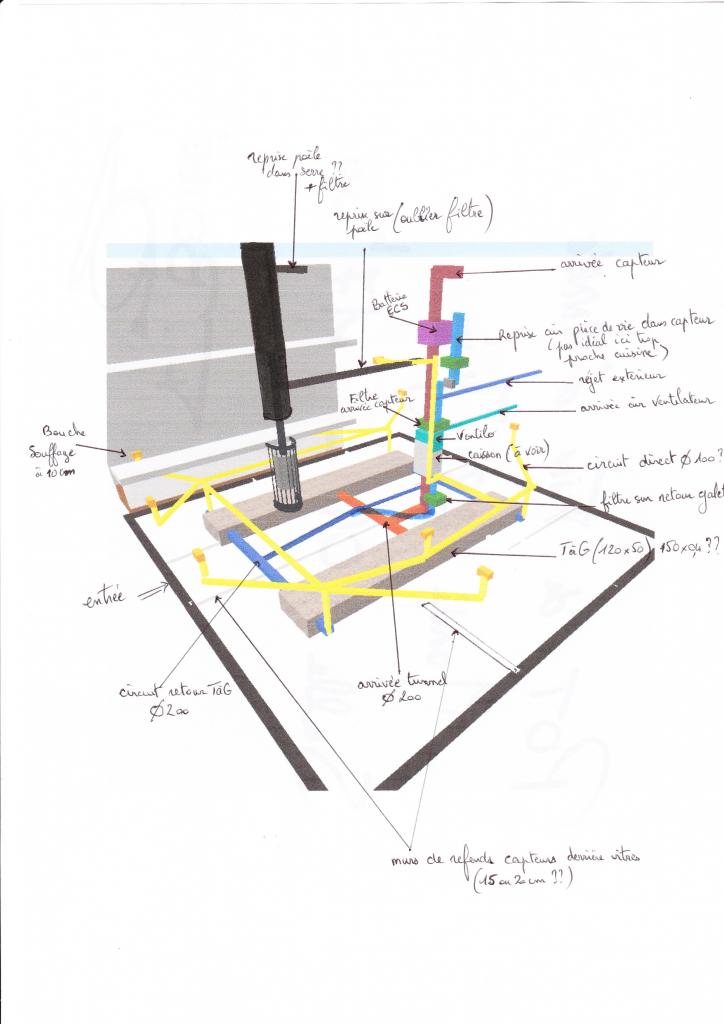 reprise poële
dans serre ??
+ filtre
reprise sur
poële (oublier filtre)
arrivée capteur
Batterie
ECS
Reprise air pièce de vie dans capteur
(pas idéal ici trop
proche cuisine)
rejet extérieur
Filtre
arrivée capteur
arrivée air ventilateur
Bouche
Souffage
à 10cm
Ventilo
caisson (à voir)
circuit direct Ø 100 ?
filtre sur retour galet
TàG (120x50) 150x04 ??
entrée
circuit retour TàG
Ø 200
arrivée tunnel
Ø 200
murs de refends capteurs derrière vitres
(15 ou 20cm ??)